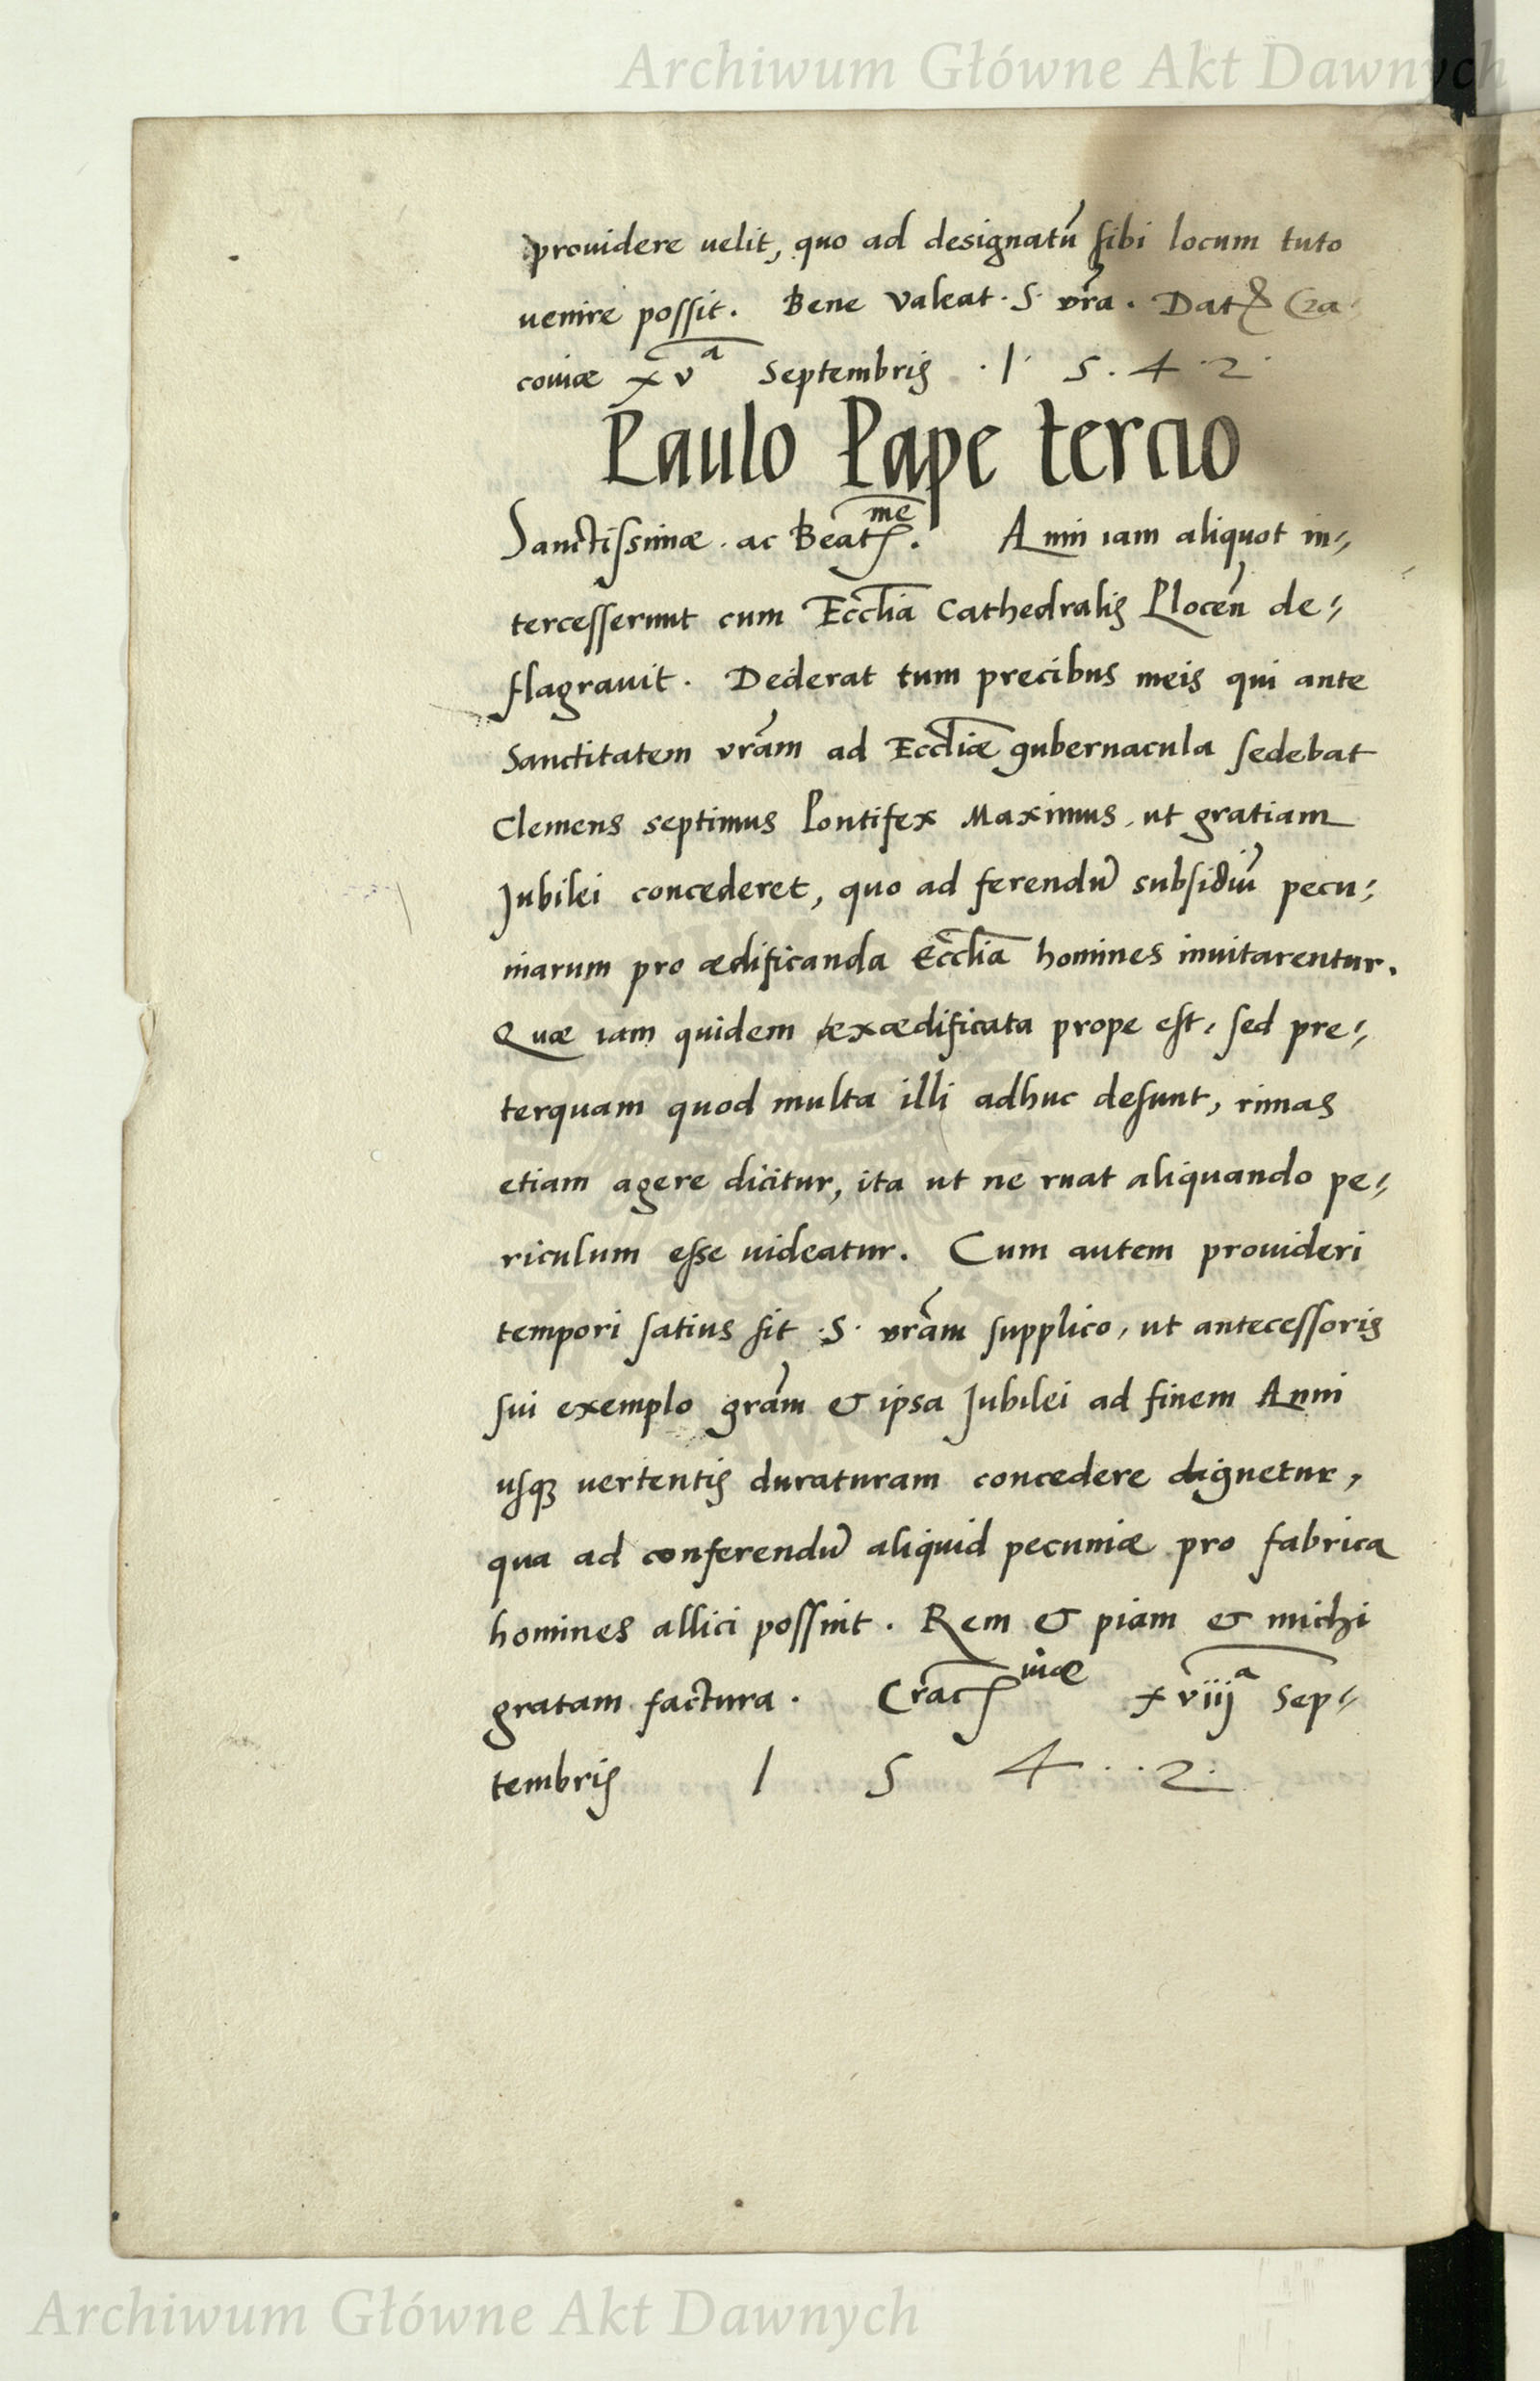 Archiwum Główne Akt Dawnych
prouidere uelit, quo ad designatũ sibi locum tuto
uenire possit. Bene Valeat. S. vrã. Dat Cra
couiæ xvᵃ Septembris .1 5. 4. 2
Paulo Pape tercio
Sanctissimæ. ac Beatᵐᵉ. Anni iam aliquot in⸗
tercesserunt cum Eccľia Cathedralis Ploceñ de⸗
flagrauit. Dederat tum precibus meis qui ante
Sanctitatem vrãm ad Eccľiæ gubernacula sedebat
Clemens septimus Pontifex Maximus, ut gratiam
Jubilei concederet, quo ad ferendũ subsidiũ pecu⸗
niarum pro ædificanda Eccľia homines inuitarentur.
Quæ iam quidem exædificata prope est, sed pre⸗
terquam quod multa illi adhuc desunt, rimas
etiam agere dicitur, ita ut ne ruat aliquando pe⸗
riculum esse uideatur. Cum autem prouideri
tempori satius sit .S. vrãm supplico, ut antecessoris
sui exemplo grãm & ipsa Jubilei ad finem Anni
usqꝫ vertentis duraturam concedere dignetur,
qua ad conferendũ aliquid pecuniæ pro fabrica
homines allici possint. Rem & piam & michi
gratam factura. Cracⁱᵘⁱæ xviijᵃ Sep⸗
tembris 1 5 4 . . 2.
Archiwum Główne Akt Dawnych